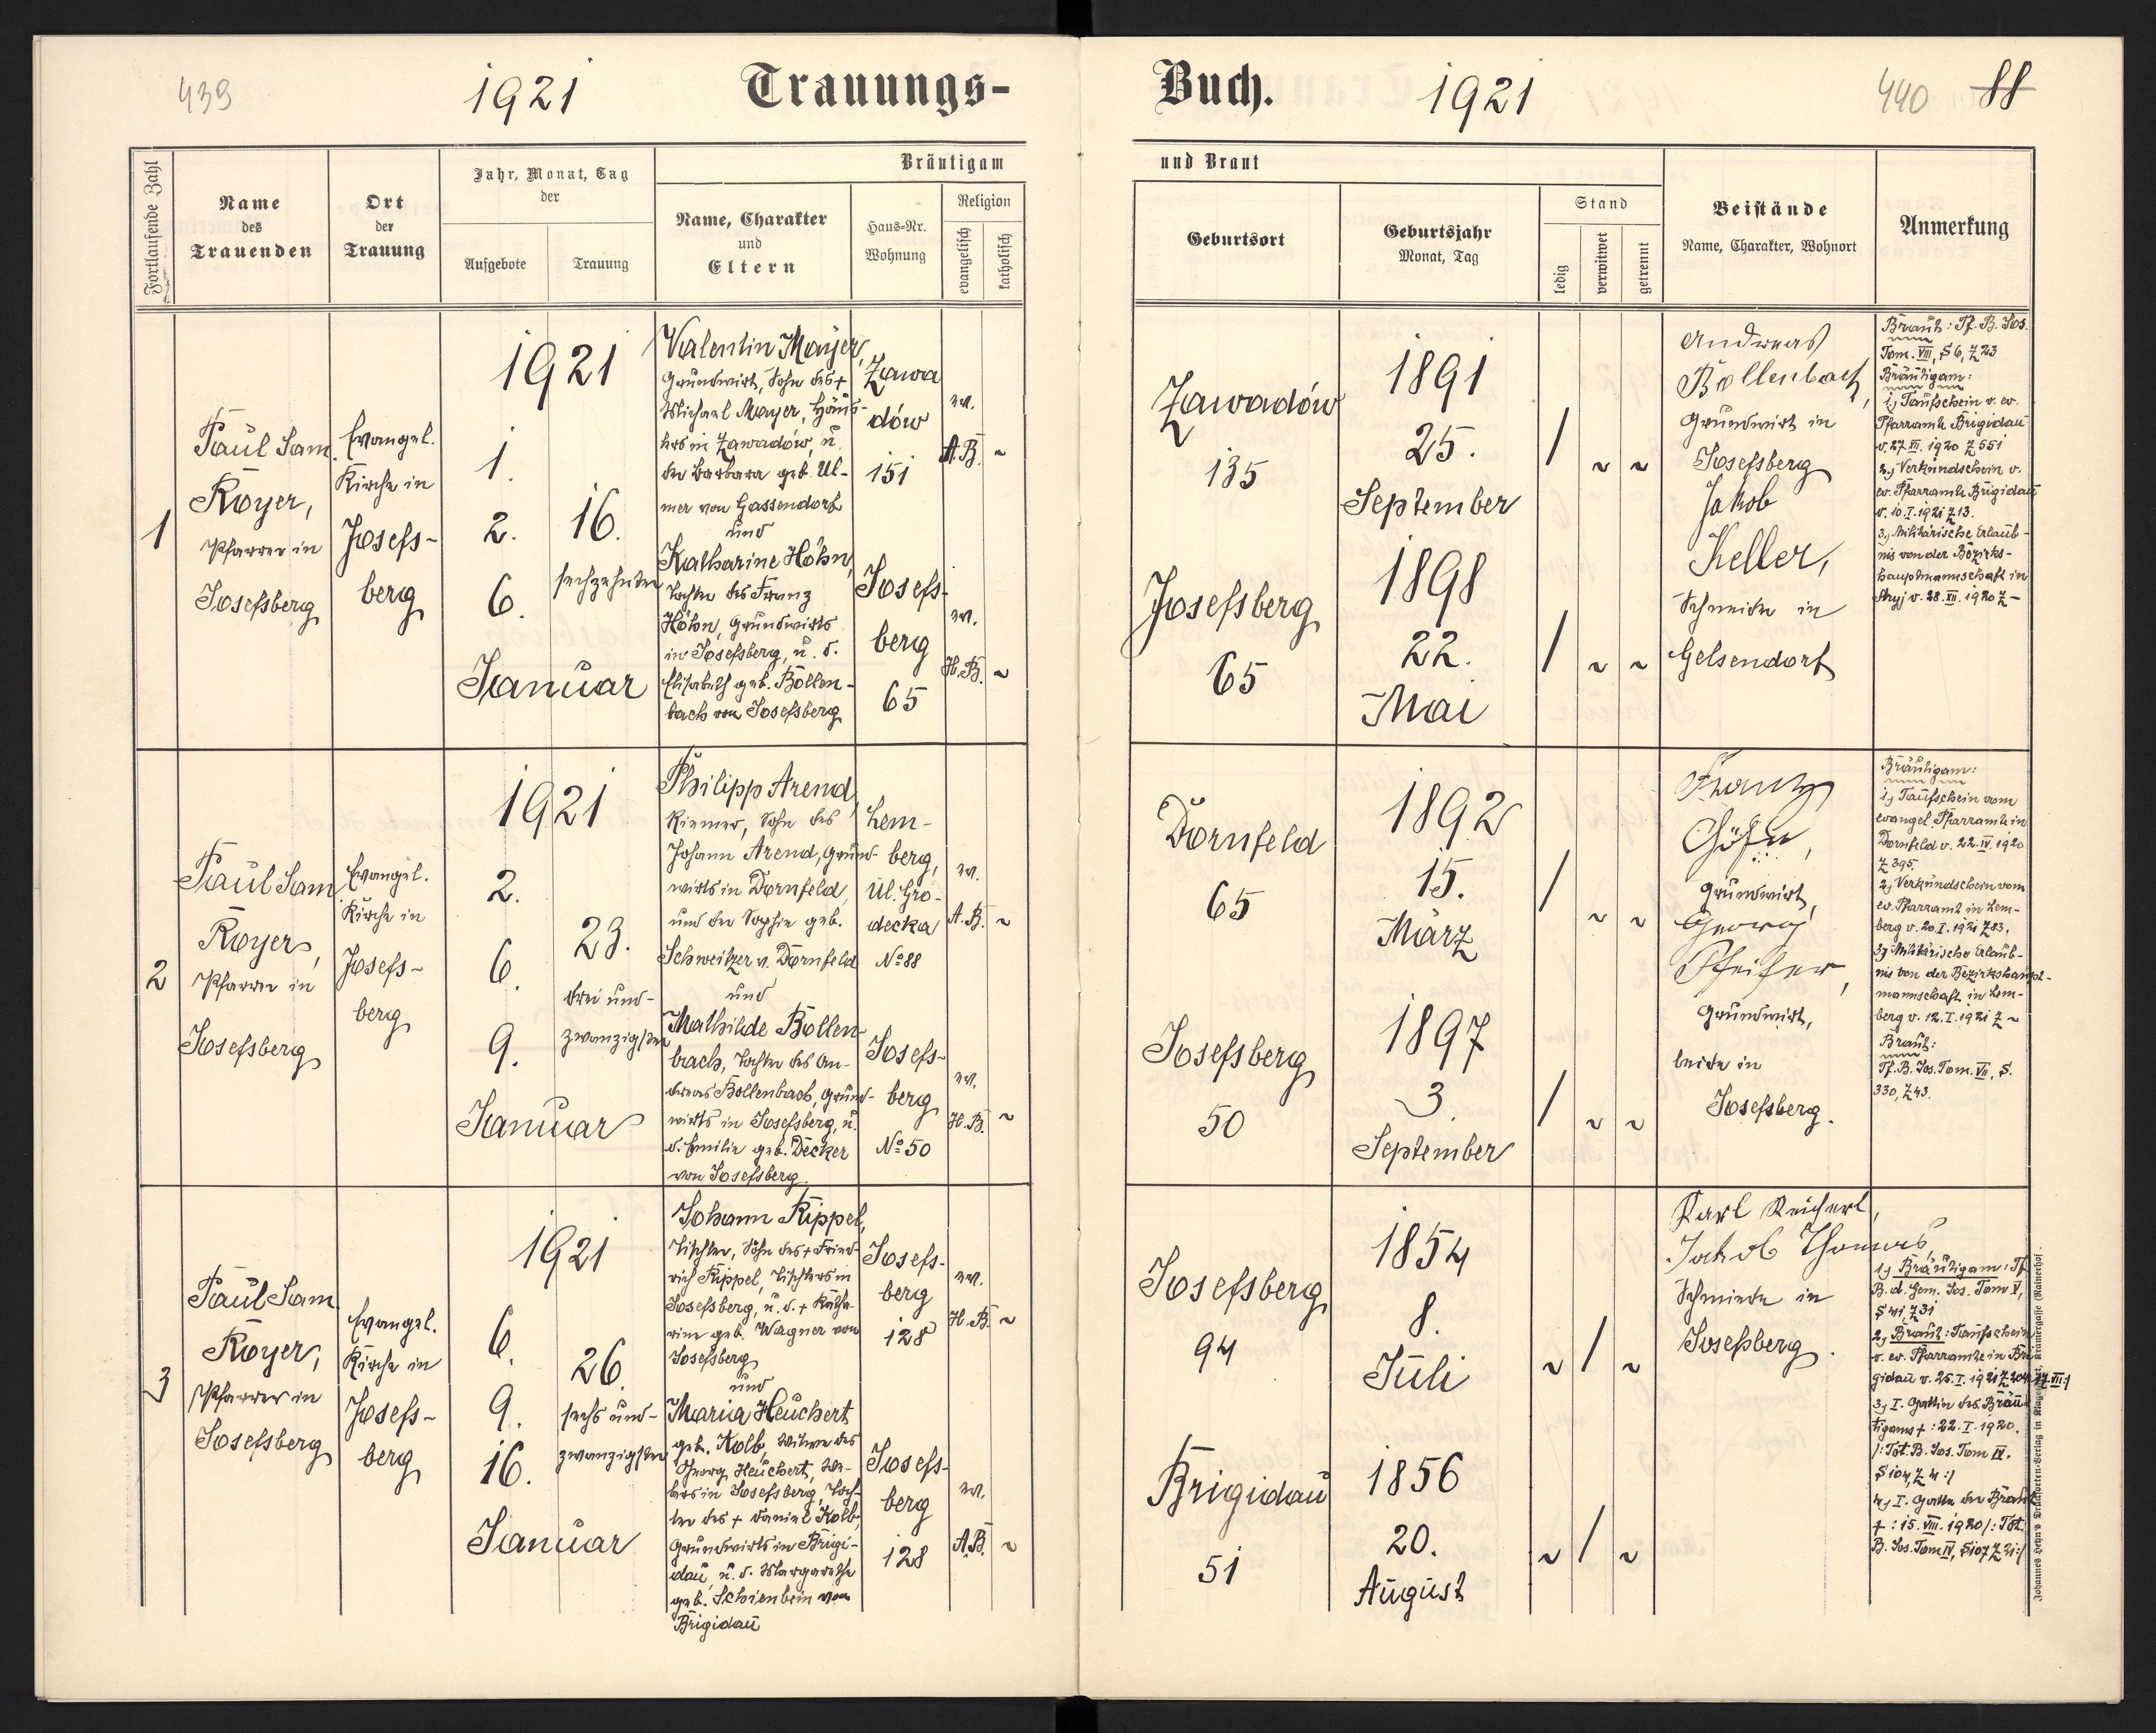 439
1921
Trauungs-
Fortlaufende Zahl
Name
des
Trauenden
Ort
der
Trauung
Jahr, Monat, Tag
der
Aufgebote
Trauung
Bräutigam
Name, Charakter
und
Eltern
Haus-Nr.
Wohnung
Religion
evangelisch
katholisch
1
Paul Sam.
Royer,
Pfarrer in
Josefsberg
Evangel.
Kirche in
Josefs-
berg
1921
1.
2.
6.
16.
sechzehnten
Januar
Valentin Mayer,
Grundwirt, Sohn des +
Michael Mayer, Häus-
lers in Zawadów, u.
der Barbara geb. Ul-
mer von Gassendorf
und
Katharine Höhn,
Tochter des Franz
Höhn, Grundwirts
in Josefsberg, u. d.
Elisabeth geb. Bollen-
bach von Josefsberg
Zawa
dów
151
Josefs-
berg
65
ev.
A.B. ~
ev.
H.B. ~
2
Paul Sam
Royer,
Pfarrer in
Josefsberg
Evangel.
Kirche in
Josefs-
berg
1921
2.
6.
9.
23.
drei und-
zwanzigsten
Januar
Philipp Arend,
Riemer, Sohn des
Johann Arend, Grund-
wirts in Dornfeld,
und der Sophie geb.
Schweitzer v. Dornfeld
und
Mathilde Bollen-
bach, Tochter des An-
dreas Bollenbach, Grund-
wirts in Josefsberg, u.
d. Emilie geb. Decker
von Josefsberg
Lem-
berg,
Ul. Gro-
decka
No 88
Josefs-
berg
No 50
ev.
A.B. ~
ev.
H.B. ~
3
Paul Sam.
Royer,
Pfarrer in
Josefsberg
Evangel.
Kirche in
Josefs-
berg
1921
6.
9.
16.
26.
sechs und-
zwanzigsten
Januar
Johann Rippel,
Tischler, Sohn des + Fried-
rich Rippel, Tischlers in
Josefsberg, u. d. + Katha-
rine geb. Wagner von
Josefsberg
und
Maria Heuchert
geb. Kolb, Witwe des
Georg Heuchert, We-
bers in Josefsberg, Toch-
ter des + Daniel Kolb,
Grundwirts in Brigi-
dau, u. d. Margarethe
geb. Schienbein von
Brigidau
Josefs-
berg
128
Josefs-
berg
128
ev.
H.B. ~
ev.
A.B. ~
Buch.
1921
440
88
und Braut
Geburtsort
Geburtsjahr
Monat, Tag
Stand
ledig
verwitwet
getrennt
Beistände
Name, Charakter, Wohnort
Anmerkung
Zawadów
135
Josefsberg
65
1891
25.
September
1898
22.
Mai
/ ~ ~
/ ~ ~
Andreas
Bollenbach,
Grundwirt in
Josefsberg
Jakob
Keller,
Schmied in
Gelsendorf
Braut: Tf. B. Jos.
Tom. VIII, S 6, Z 23
Bräutigam:
1, Taufschein v. ev.
Pfarramte Brigidau
v. 27. XII. 1920 Z 551
2, Verkündschein v.
ev. Pfarramte Brigidau
v. 10. I. 1921 Z 13.
3, Militärische Erlaub-
nis von der Bezirks-
hauptmannschaft in
Stryj v. 28. XII. 1920 Z -
Dornfeld
65
Josefsberg
50
1892
15.
März
1897
3.
September
/ ~ ~
/ ~ ~
Franz
Höhn,
Grundwirt,
Georg
Pfeifer,
Grundwirt,
beide in
Josefsberg.
Bräutigam:
1, Taufschein vom
evangel. Pfarramte in
Dornfeld v. 22. IV. 1920
Z 395.
2, Verkündschein vom
ev. Pfarramt in Lem-
berg v. 20. I. 1921 Z 83.
3, Militärische Erlaub-
nis von der Bezirkshaupt-
mannschaft in Lem-
berg v. 12. I. 1921 Z ~
Braut:
Tf. B. Jos. Tom. VII, S.
330, Z 43.
Josefsberg
94
Brigidau
51
1854
8.
Juli
1856
20.
August
~ / ~
~ / ~
Karl Reichert,
Jakob Thomas,
Schmiede in
Josefsberg.
1, Bräutigam: Tf
B. d. Gem. Jos. Tom V,
S 41, Z 31
2, Braut: Taufschein
v. ev. Pfarramte in Bri
gidau v. 25. I. 1921 Z
3, I. Gattin des Bräu
tigams + : 22. I. 1920.
/: Tot. B. Jos. Tom IV.
S 104, Z 4 :/
4, I. Gatte der Braut
+ : 15. VIII. 1920 /: Tot.
B. Jos. Tom IV, S 107 Z 21 :/
Johannes Heyn's Drucksorten-Verlag in Klagenfurt, Kramergasse (Rainerhof).